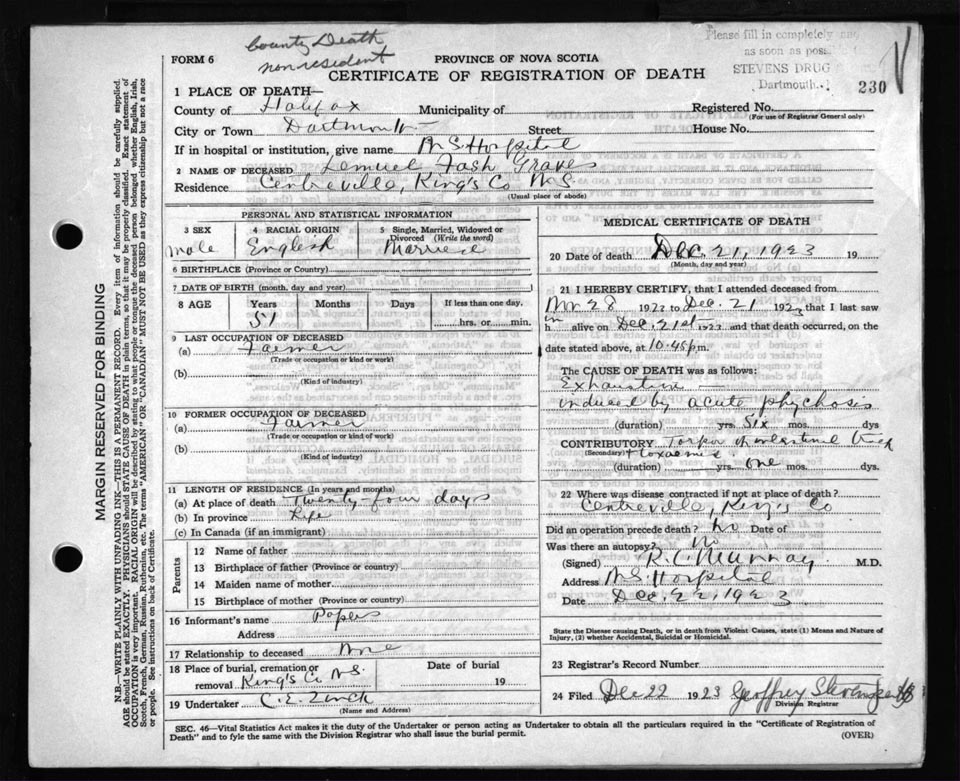 County Death
non resident
Please fill in completely and
as soon as poss
STEVENS DRUG
Dartmouth
230
FORM 6
PROVINCE OF NOVA SCOTIA
CERTIFICATE OF REGISTRATION OF DEATH
1 PLACE OF DEATH—
County of Halifax Municipality of Registered No.
(For use of Registrar General only)
City or Town Dartmouth Street House No.
If in hospital or institution, give name N S Hospital
2 NAME OF DECEASED Lemuel Fash Graves
Residence Centreville, King's Co N.S.
(Usual place of abode)
PERSONAL AND STATISTICAL INFORMATION
3 SEX 4 RACIAL ORIGIN 5 Single, Married, Widowed or
Divorced (Write the word)
male English Married
6 BIRTHPLACE (Province or Country)
7 DATE OF BIRTH (month, day and year)
8 AGE Years Months Days If less than one day.
51 hrs. or min.
9 LAST OCCUPATION OF DECEASED
(a) Farmer
(Trade or occupation or kind or work)
(b)
(Kind of industry)
10 FORMER OCCUPATION OF DECEASED
(a) Farmer
(Trade or occupation or kind of work)
(b)
(Kind of industry)
11 LENGTH OF RESIDENCE (In years and months)
(a) At place of death Twenty four days
(b) In province Life
(c) In Canada (if an immigrant)
Parents
12 Name of father
13 Birthplace of father (Province or country)
14 Maiden name of mother
15 Birthplace of mother (Province or country)
16 Informant's name Papers
Address
17 Relationship to deceased
18 Place of burial, cremation or Date of burial
removal King's Co N.S. 19
19 Undertaker C. E. Zinck
(Name and Address)
MEDICAL CERTIFICATE OF DEATH
20 Date of death Dec. 21, 1923 19
(Month, day and year)
21 I HEREBY CERTIFY, that I attended deceased from
Nov 28 1923 to Dec. 21 1923 that I last saw
him alive on Dec. 21st 1923 and that death occurred, on the
date stated above, at 10.45 p.m.
The CAUSE OF DEATH was as follows:
Exhaustion
induced by acute phychosis
(duration) yrs. six mos. dys
CONTRIBUTORY Torpor of intestinal track
(Secondary) + toxaemia
(duration) yrs. one mos. dys.
22 Where was disease contracted if not at place of death?
Centreville, King's Co
Did an operation precede death? No Date of
Was there an autopsy? No
(Signed) M.D.
Address N S Hospital
Date Dec. 22, 1923
State the Disease causing Death, or in death from Violent Causes, state (1) Means and Nature of
Injury, (2) whether Accidental, Suicidal or Homicidal.
23 Registrar's Record Number
24 Filed Dec 22 1923 Geoffrey Stevens
Division Registrar
SEC. 46—Vital Statistics Act makes it the duty of the Undertaker or person acting as Undertaker to obtain all the particulars required in the "Certificate of Registration of
Death" and to fyle the same with the Division Registrar who shall issue the burial permit. (OVER)
MARGIN RESERVED FOR BINDING
N.B.—WRITE PLAINLY WITH UNFADING INK—THIS IS A PERMANENT RECORD. Every item of information should be carefully supplied.
AGE should be stated EXACTLY. PHYSICIANS should STATE CAUSE OF DEATH in plain terms, so that it may be properly classified. Exact statement of
OCCUPATION is very important. RACIAL ORIGIN will be described by stating to what people or tongue the deceased person belonged whether English, Irish,
Scotch, French, German, Russian, Ruthenian, etc. The terms "AMERICAN" OR "CANADIAN" MUST NOT BE USED as they express citizenship but not a race
or people. See instructions on back of Certificate.